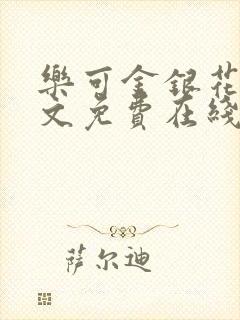 樂可金銀花
文免費在綫
萨尔迪